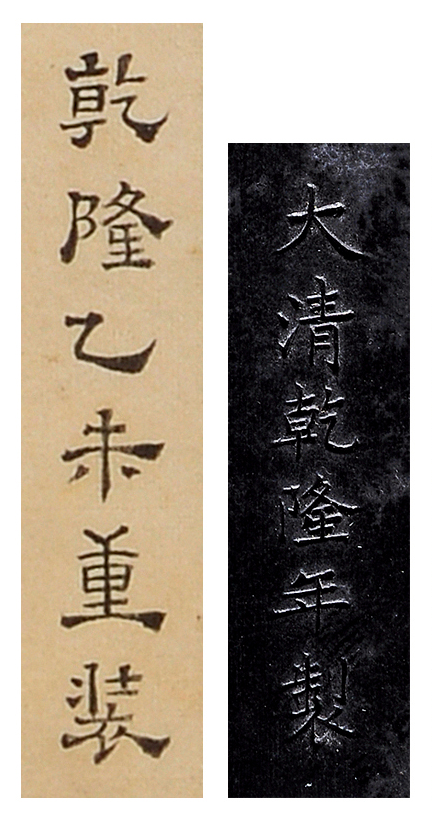 乾隆乙未重装
大清乾隆年製